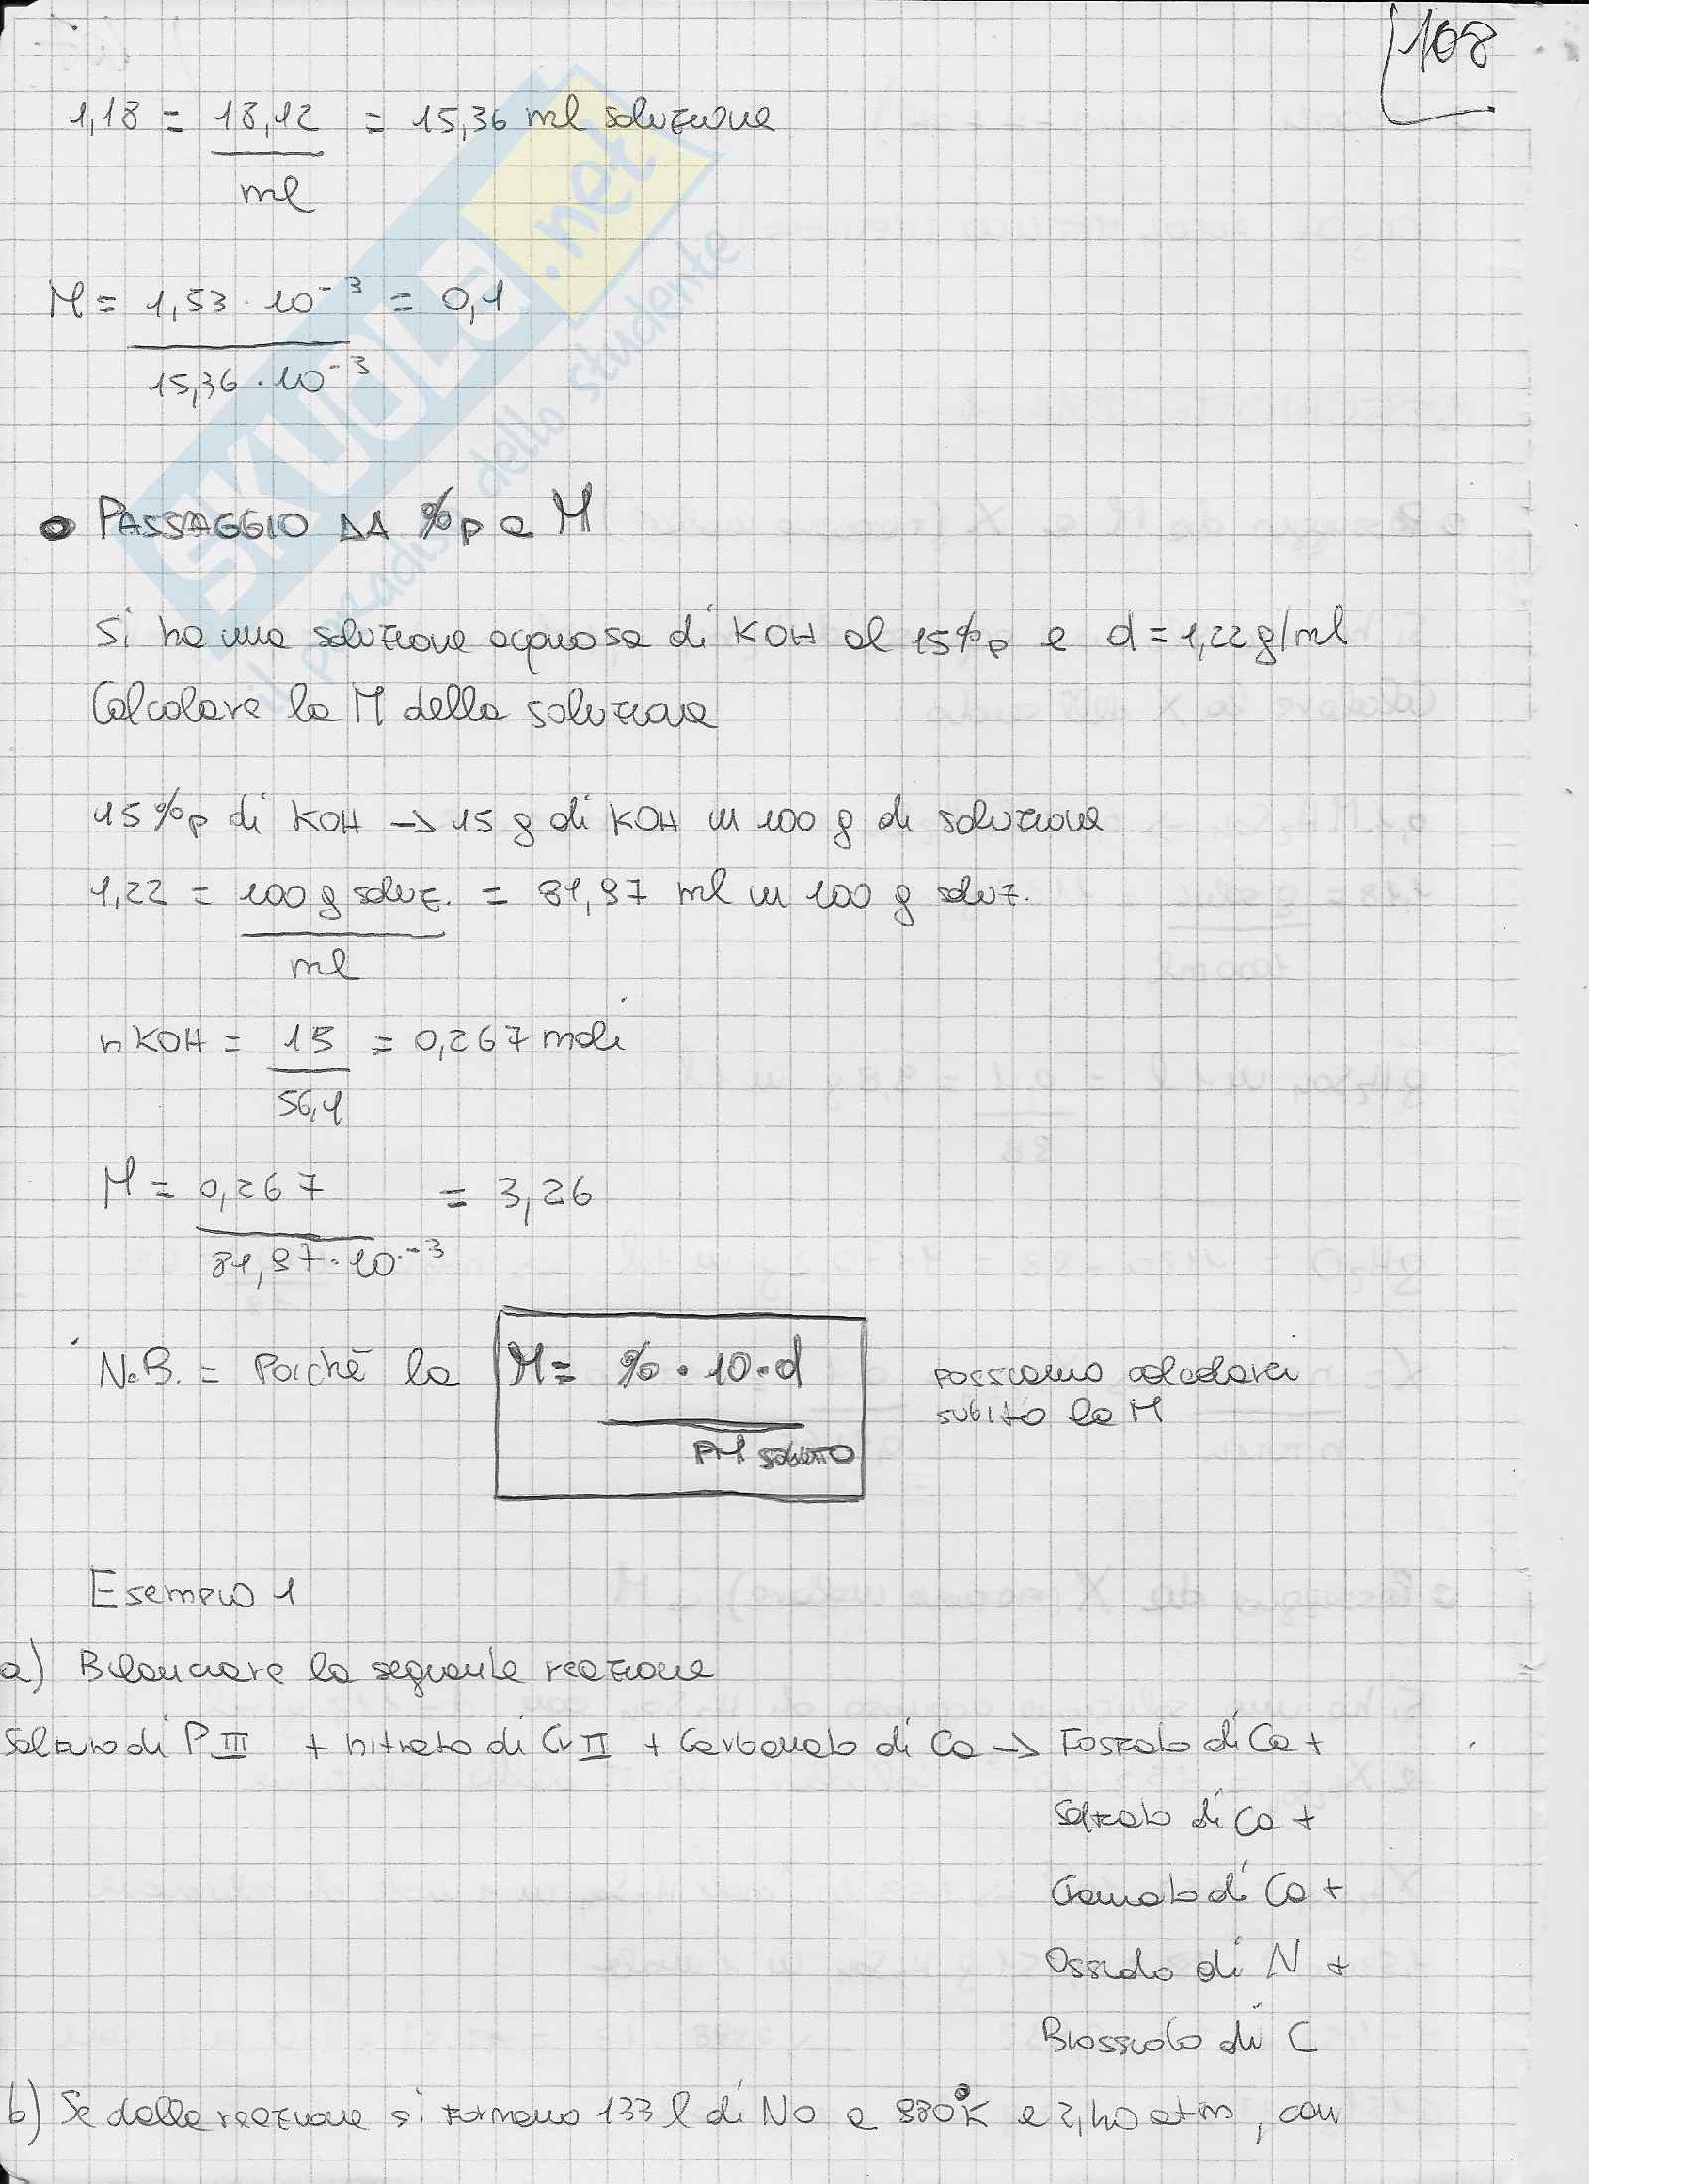 108
1,18 = 18,12 = 15,36 ml soluzione
ml
M = 1,53 · 10⁻³ = 0,1
15,36 · 10⁻³
SKUOLA.net
il paradiso dello studente
• PASSAGGIO DA %p a M
Si ha una soluzione acquosa di KOH al 15%p e d = 1,22 g/ml
Calcolare la M della soluzione
15%p di KOH -> 15 g di KOH in 100 g di soluzione
1,22 = 100 g soluz. = 81,97 ml in 100 g soluz.
ml
n KOH = 15 = 0,267 moli
56,1
M = 0,267 = 3,26
81,97 · 10⁻³
N.B. = Poichè la M = % · 10 · d possiamo calcolarci
PM soluto subito la M
Esempio 1
a) Bilanciare la seguente reazione
Solfuro di P III + nitrato di Cr II + Carbonato di Ca -> Fosfato di Ca +
Solfato di Ca +
Cromato di Ca +
Ossido di N +
Biossido di C
b) Se dalla reazione si formano 133 l di NO a 980°K e 2,40 atm, con